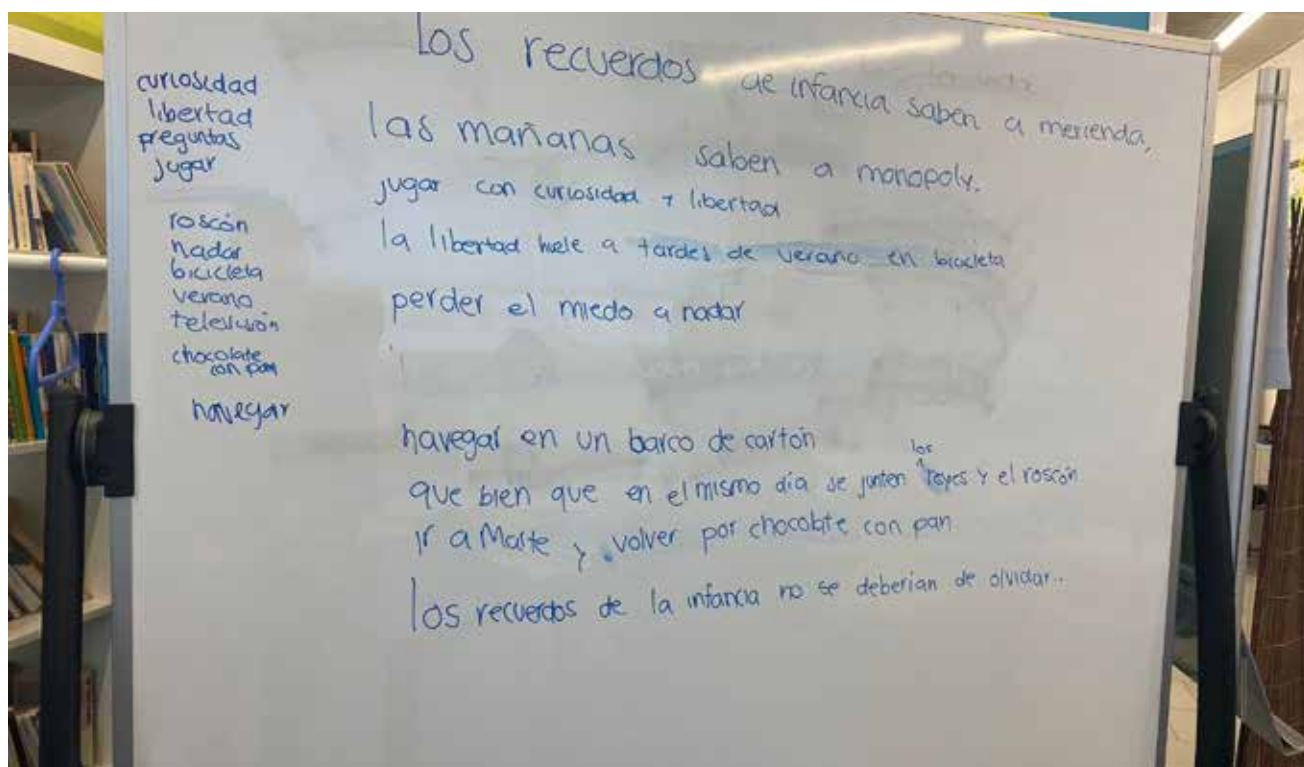 curiosidad
libertad
preguntas
jugar
roscón
nadar
bicicleta
verano
televisión
chocolate
con pan
navegar
los recuerdos de infancia saben a merienda,
las mañanas saben a monopoly.
jugar con curiosidad y libertad
la libertad huele a tardes de verano en bicicleta
perder el miedo a nadar
navegar en un barco de cartón
que bien que en el mismo día se junten los reyes y el roscón
ir a Marte y volver por chocolate con pan
los recuerdos de la infancia no se deberian de olvidar..